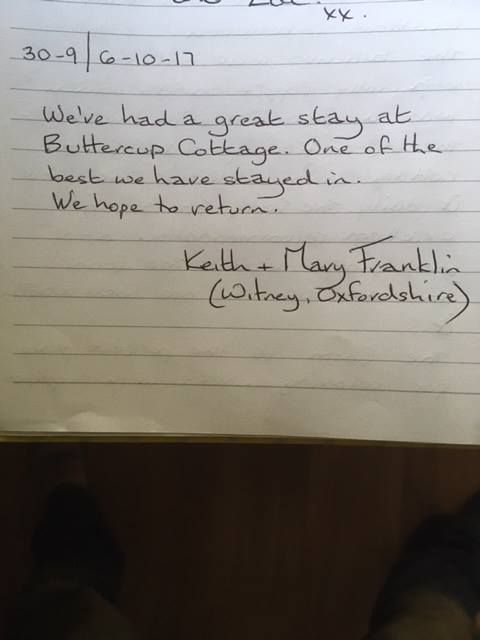 xx.
30-9|6-10-17
We've had a great stay at
Buttercup Cottage. One of the
best we have stayed in.
We hope to return.
Keith + Mary Franklin
(Witney, Oxfordshire)